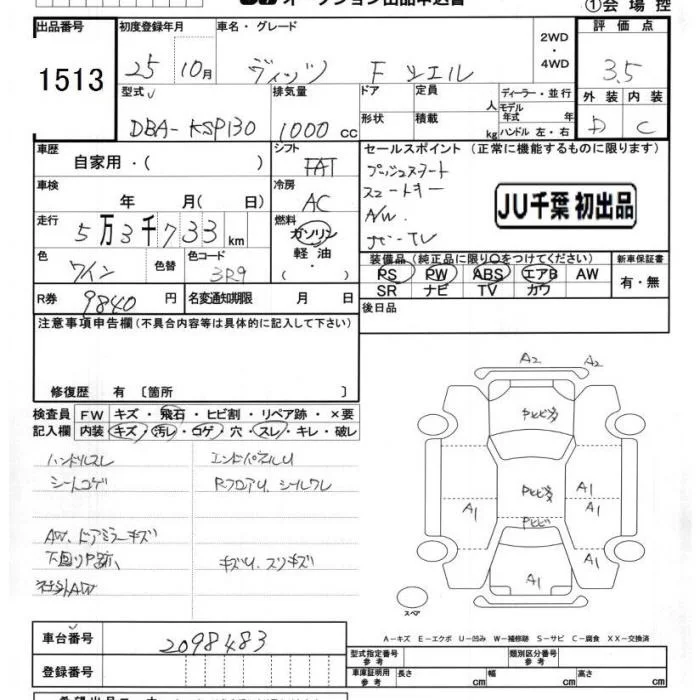 オークション出品申込書 ①会場控
出品番号 初度登録年月 車名・グレード 2WD・4WD 評価点
1513 25 10月 ヴィッツ F シエル 3.5
型式 排気量 ドア 定員 人 ディーラー・並行 外装 内装
DBA-KSP130 1000 cc 形状 積載 kg モデル年式 年 ハンドル 左・右 D C
車歴 シフト セールスポイント (正常に機能するものに限ります)
自家用・( ) FAT プッシュスタート
車検 冷房 スマートキー
年 月( 日) AC A/W
JU千葉 初出品
走行 燃料 ナビ・TV
5万3千733km ガソリン 軽油 ・( )
色 色替 色コード 装備品 (純正品に限り○をつけてください) 新車保証書
ワイン 3R9 PS PW ABS エアB AW 有・無
SR ナビ TV カワ
R券 9840円 名変通知期限 月 日 後日品
注意事項申告欄 (不具合内容等は具体的に記入して下さい)
修復歴 有 〔箇所 〕
A2 A2
検査員 FW キズ・飛石・ヒビ割・リペア跡・×要
記入欄 内装 キズ・汚レ・コゲ・穴・スレ・キレ・破レ
ハンドルスレ エンドパネルU
シートコゲ RフロアU、シールワレ
AW、ドアミラーキズ
下回りP跡、 キズU、スリキズ
社外AW
A1 A1 A1
A1
スペア
A-キズ E-エクボ U-凹み W-補修跡 S-サビ C-腐食 XX-交換済
車台番号 2098483 型式指定番号 参考 類別区分番号 参考
登録番号 車庫証明用 参考 長さ cm 幅 cm 高さ cm